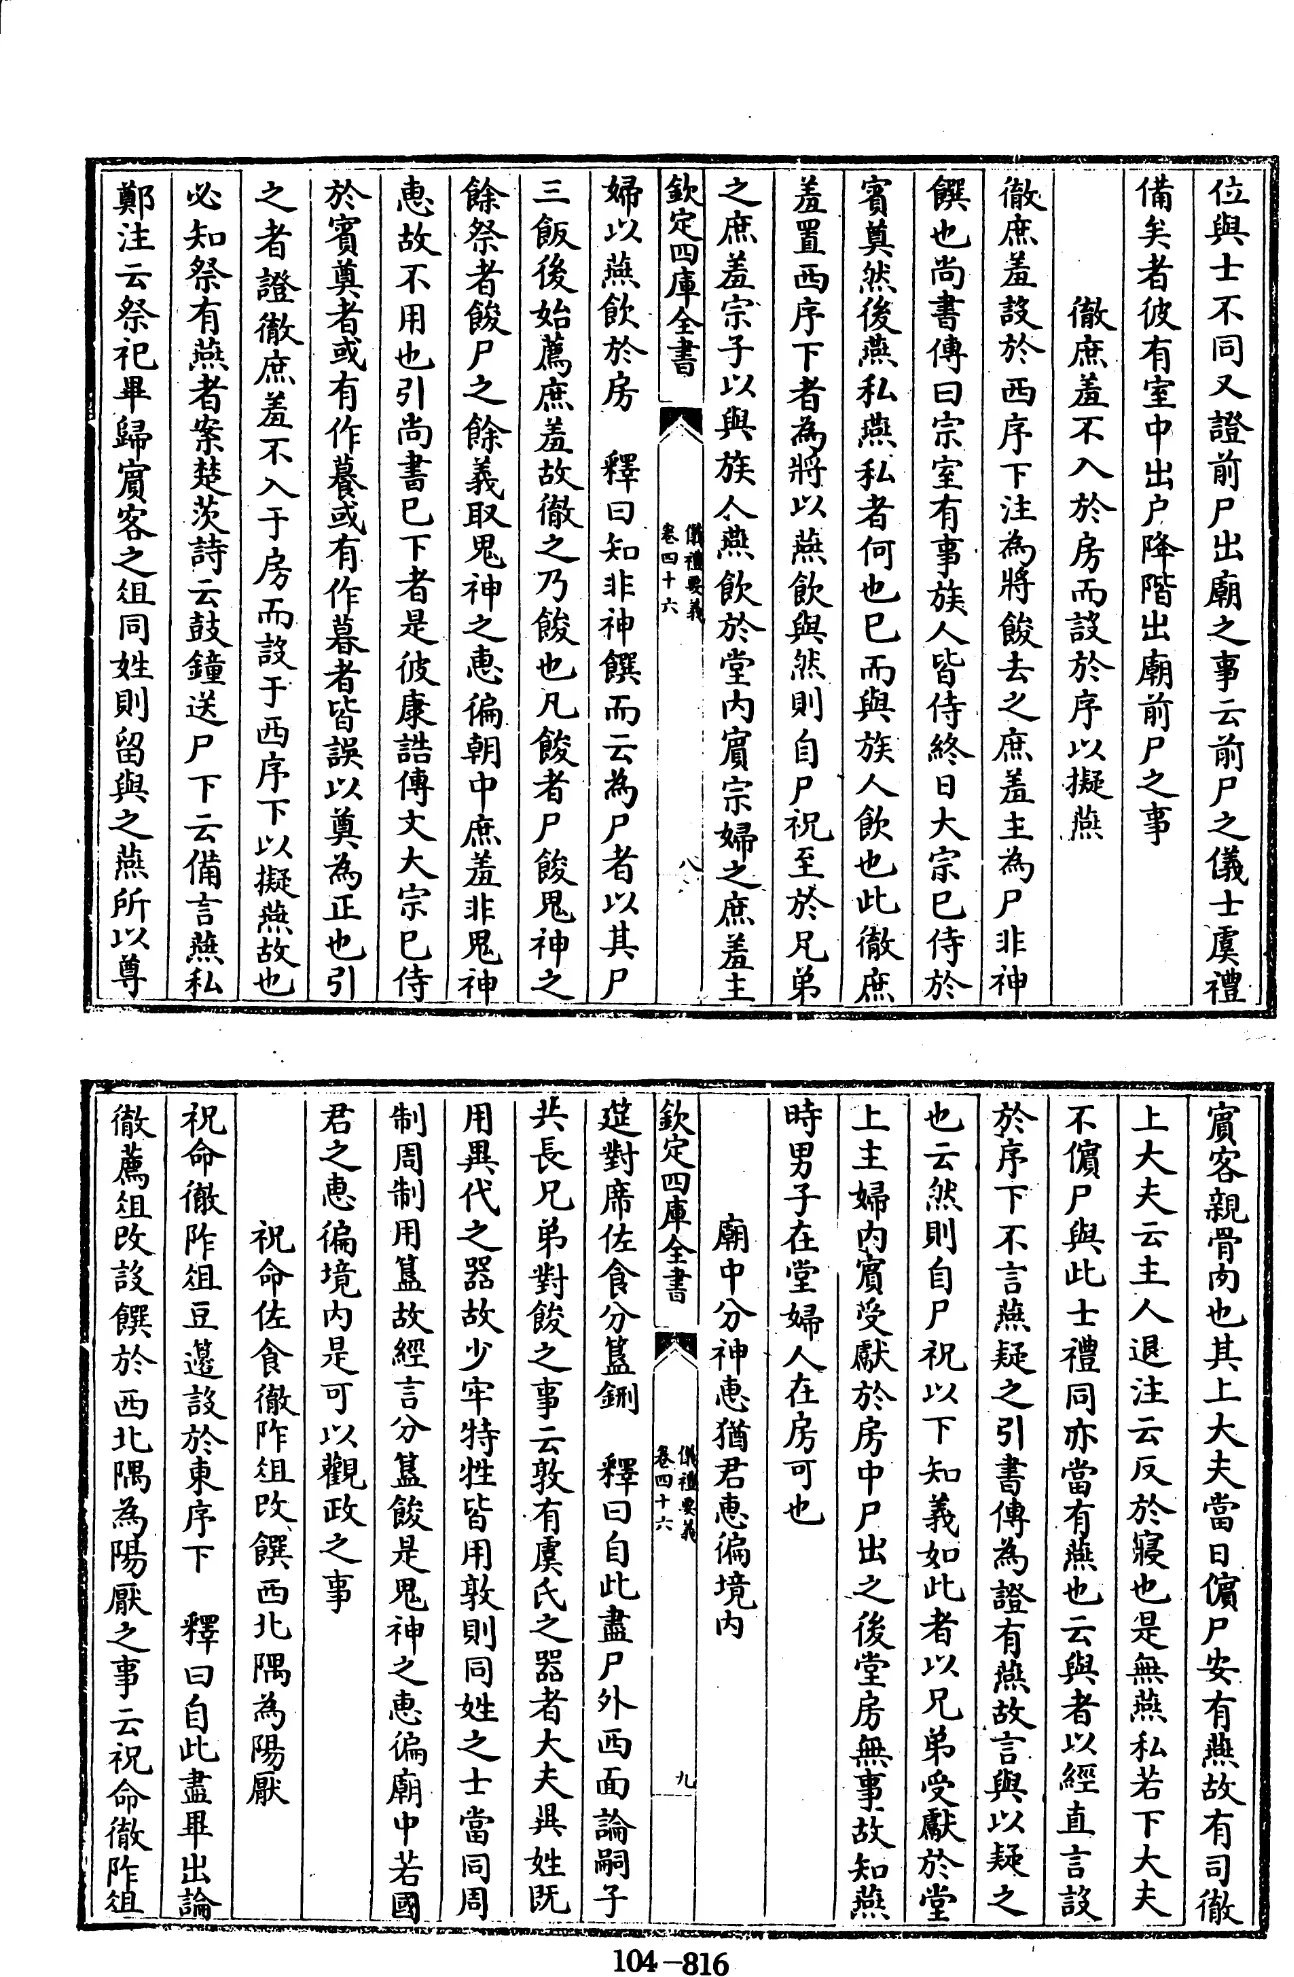 位與士不同又證前尸出廟之事云前尸之儀士虞禮
備矣者彼有室中出户降階出廟前尸之事
徹庶羞不入於房而設於序以擬燕
徹庶羞設於西序下注為將餕去之庶羞主為尸非神
饌也尚書傳曰宗室有事族人皆侍終日大宗已侍於
賓奠然後燕私燕私者何也已而與族人飲也此徹庶
羞置西序下者為將以燕飲與然則自尸祝至於兄弟
之庶羞宗子以與族人燕飲於堂内賓宗婦之庶羞主
欽定四庫全書 儀禮要義 卷四十六 八
婦以燕飲於房 釋曰知非神饌而云為尸者以其尸
三飯後始薦庶羞故徹之乃餕也凡餕者尸餕鬼神之
餘祭者餕尸之餘義取鬼神之惠徧朝中庶羞非鬼神
惠故不用也引尚書已下者是彼康誥傳文大宗已侍
於賓奠者或有作養或有作暮者皆誤以奠為正也引
之者證徹庶羞不入于房而設于西序下以擬燕故也
必知祭有燕者案楚茨詩云鼓鐘送尸下云備言燕私
鄭注云祭祀畢歸賓客之俎同姓則留與之燕所以尊
賓客親骨肉也其上大夫當日儐尸安有燕故有司徹
上大夫云主人退注云反於寢也是無燕私若下大夫
不儐尸與此士禮同亦當有燕也云與者以經直言設
於序下不言燕疑之引書傳為證有燕故言與以疑之
也云然則自尸祝以下知義如此者以兄弟受獻於堂
上主婦内賓受獻於房中尸出之後堂房無事故知燕
時男子在堂婦人在房可也
廟中分神惠猶君惠徧境内
欽定四庫全書 儀禮要義 卷四十六 九
筵對席佐食分簋鉶 釋曰自此盡尸外西面論嗣子
共長兄弟對餕之事云敦有虞氏之器者大夫異姓既
用異代之器故少牢特牲皆用敦則同姓之士當同周
制周制用簋故經言分簋餕是鬼神之惠徧廟中若國
君之惠徧境内是可以觀政之事
祝命佐食徹阼俎改饌西北隅為陽厭
祝命徹阼俎豆籩設於東序下 釋曰自此盡畢出論
徹薦俎改設饌於西北隅為陽厭之事云祝命徹阼俎
104-816